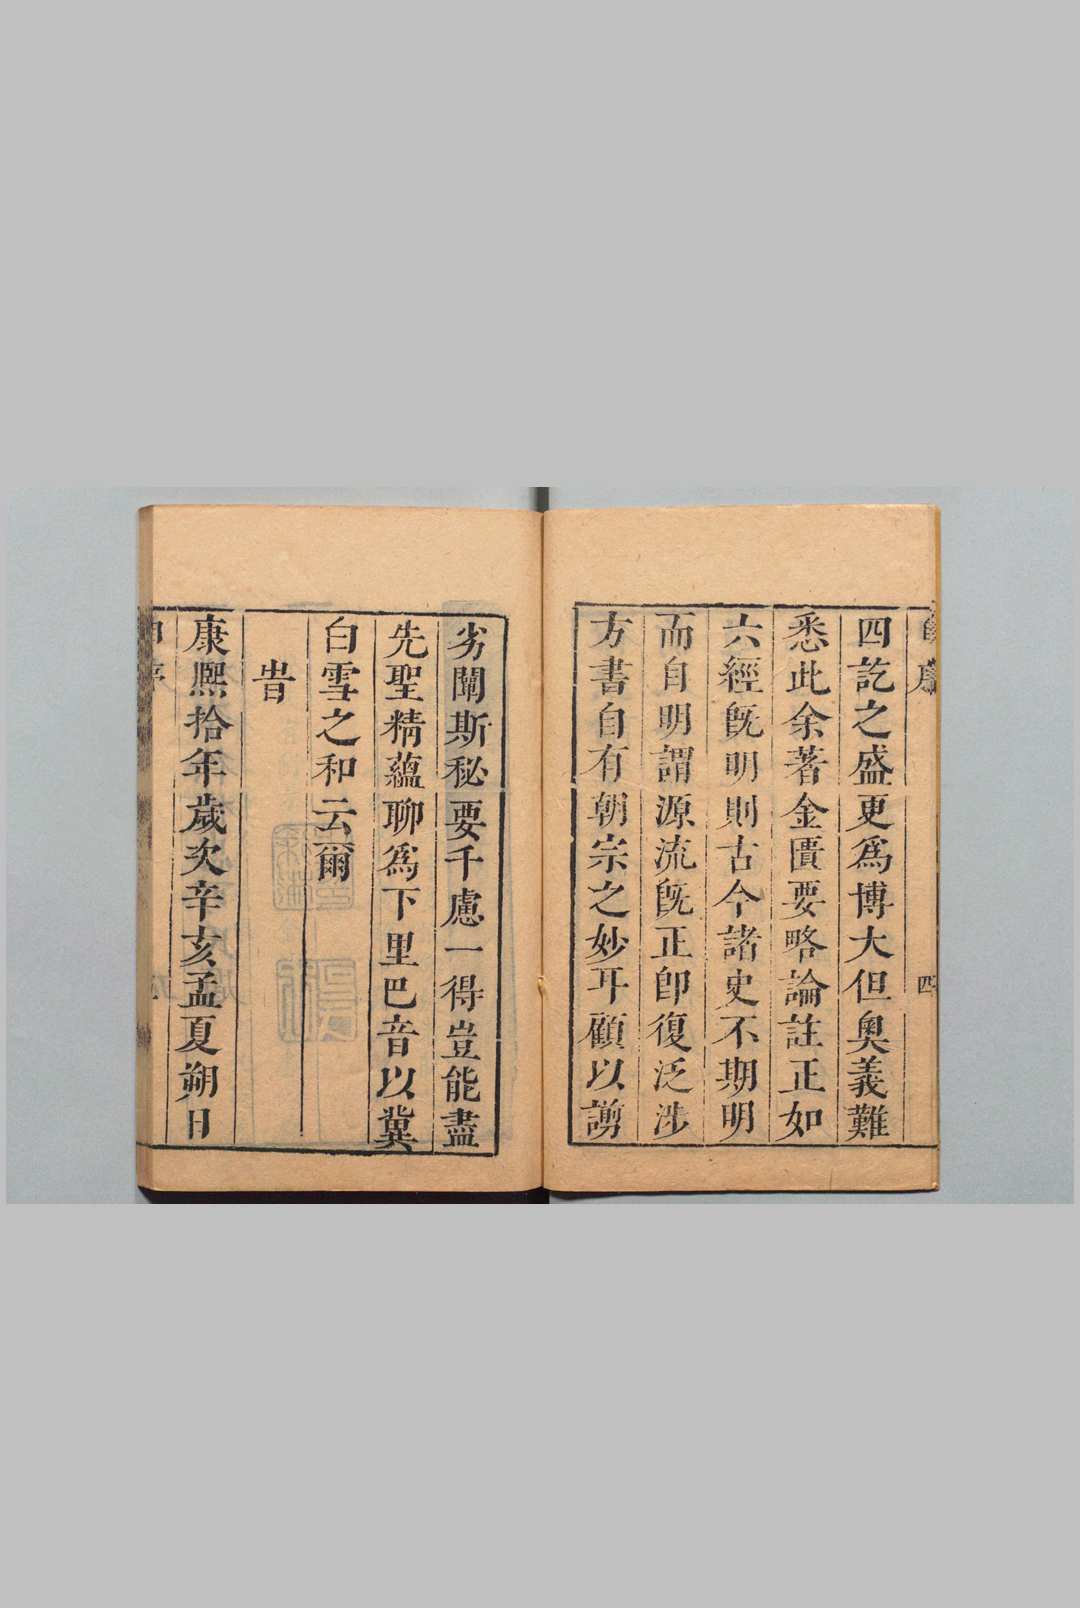 自序
四
四訖之盛更爲博大但奥義難
悉此余著金匱要略論註正如
六經旣明則古今諸史不期明
而自明謂源流旣正卽復泛涉
方書自有朝宗之妙耳顧以謭
劣闡斯秘要千慮一得豈能盡
先聖精蘊聊爲下里巴音以冀
白雪之和云爾
旹
康熙拾年歲次辛亥孟夏朔日